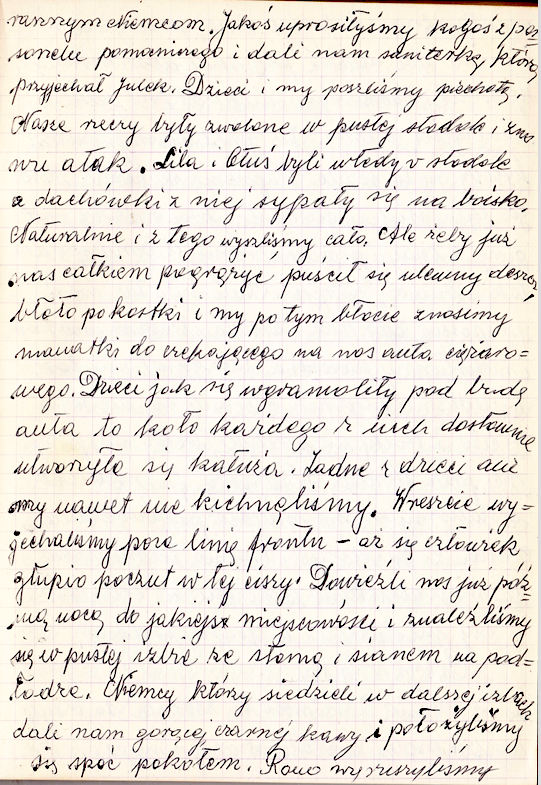 rannym Niemcom. Jakoś uprosiłyśmy kogoś z per=
sonelu pomocniczego i dali nam sanitarkę, którą
przyjechał Julek. Dzieci i my poszliśmy piechotą.
Nasze rzeczy były zwalone w pustej stodole i zno
wu atak. Lila i Otuś byli wtedy v stodole
a dachówki z niej sypały się na boisko.
Naturalnie i z tego wyszliśmy cało. Ale żeby już
nas całkiem pogrążyć puścił się ulewny deszcz,
błoto po kostki i my po tym błocie znosimy
manatki do czekającego na nas auta ciężaro=
wego. Dzieci jak się wgramoliły pod budę
auta to koło każdego z nich dosłownie
utworzyła się kałuża. Żadne z dzieci ani
my nawet nie kichnęliśmy. Wreszcie wy=
jechaliśmy poza linię frontu – aż się człowiek
głupio poczuł w tej ciszy. Dowieźli nas już póź=
ną nocą do jakiejś miejscowości i znaleźliśmy
się w pustej izbie ze słomą i sianem na pod=
łodze. Niemcy którzy siedzieli w dalszej izbach
dali nam gorącej czarnej kawy i położyliśmy
się spać pokotem. Rano wyruszyliśmy